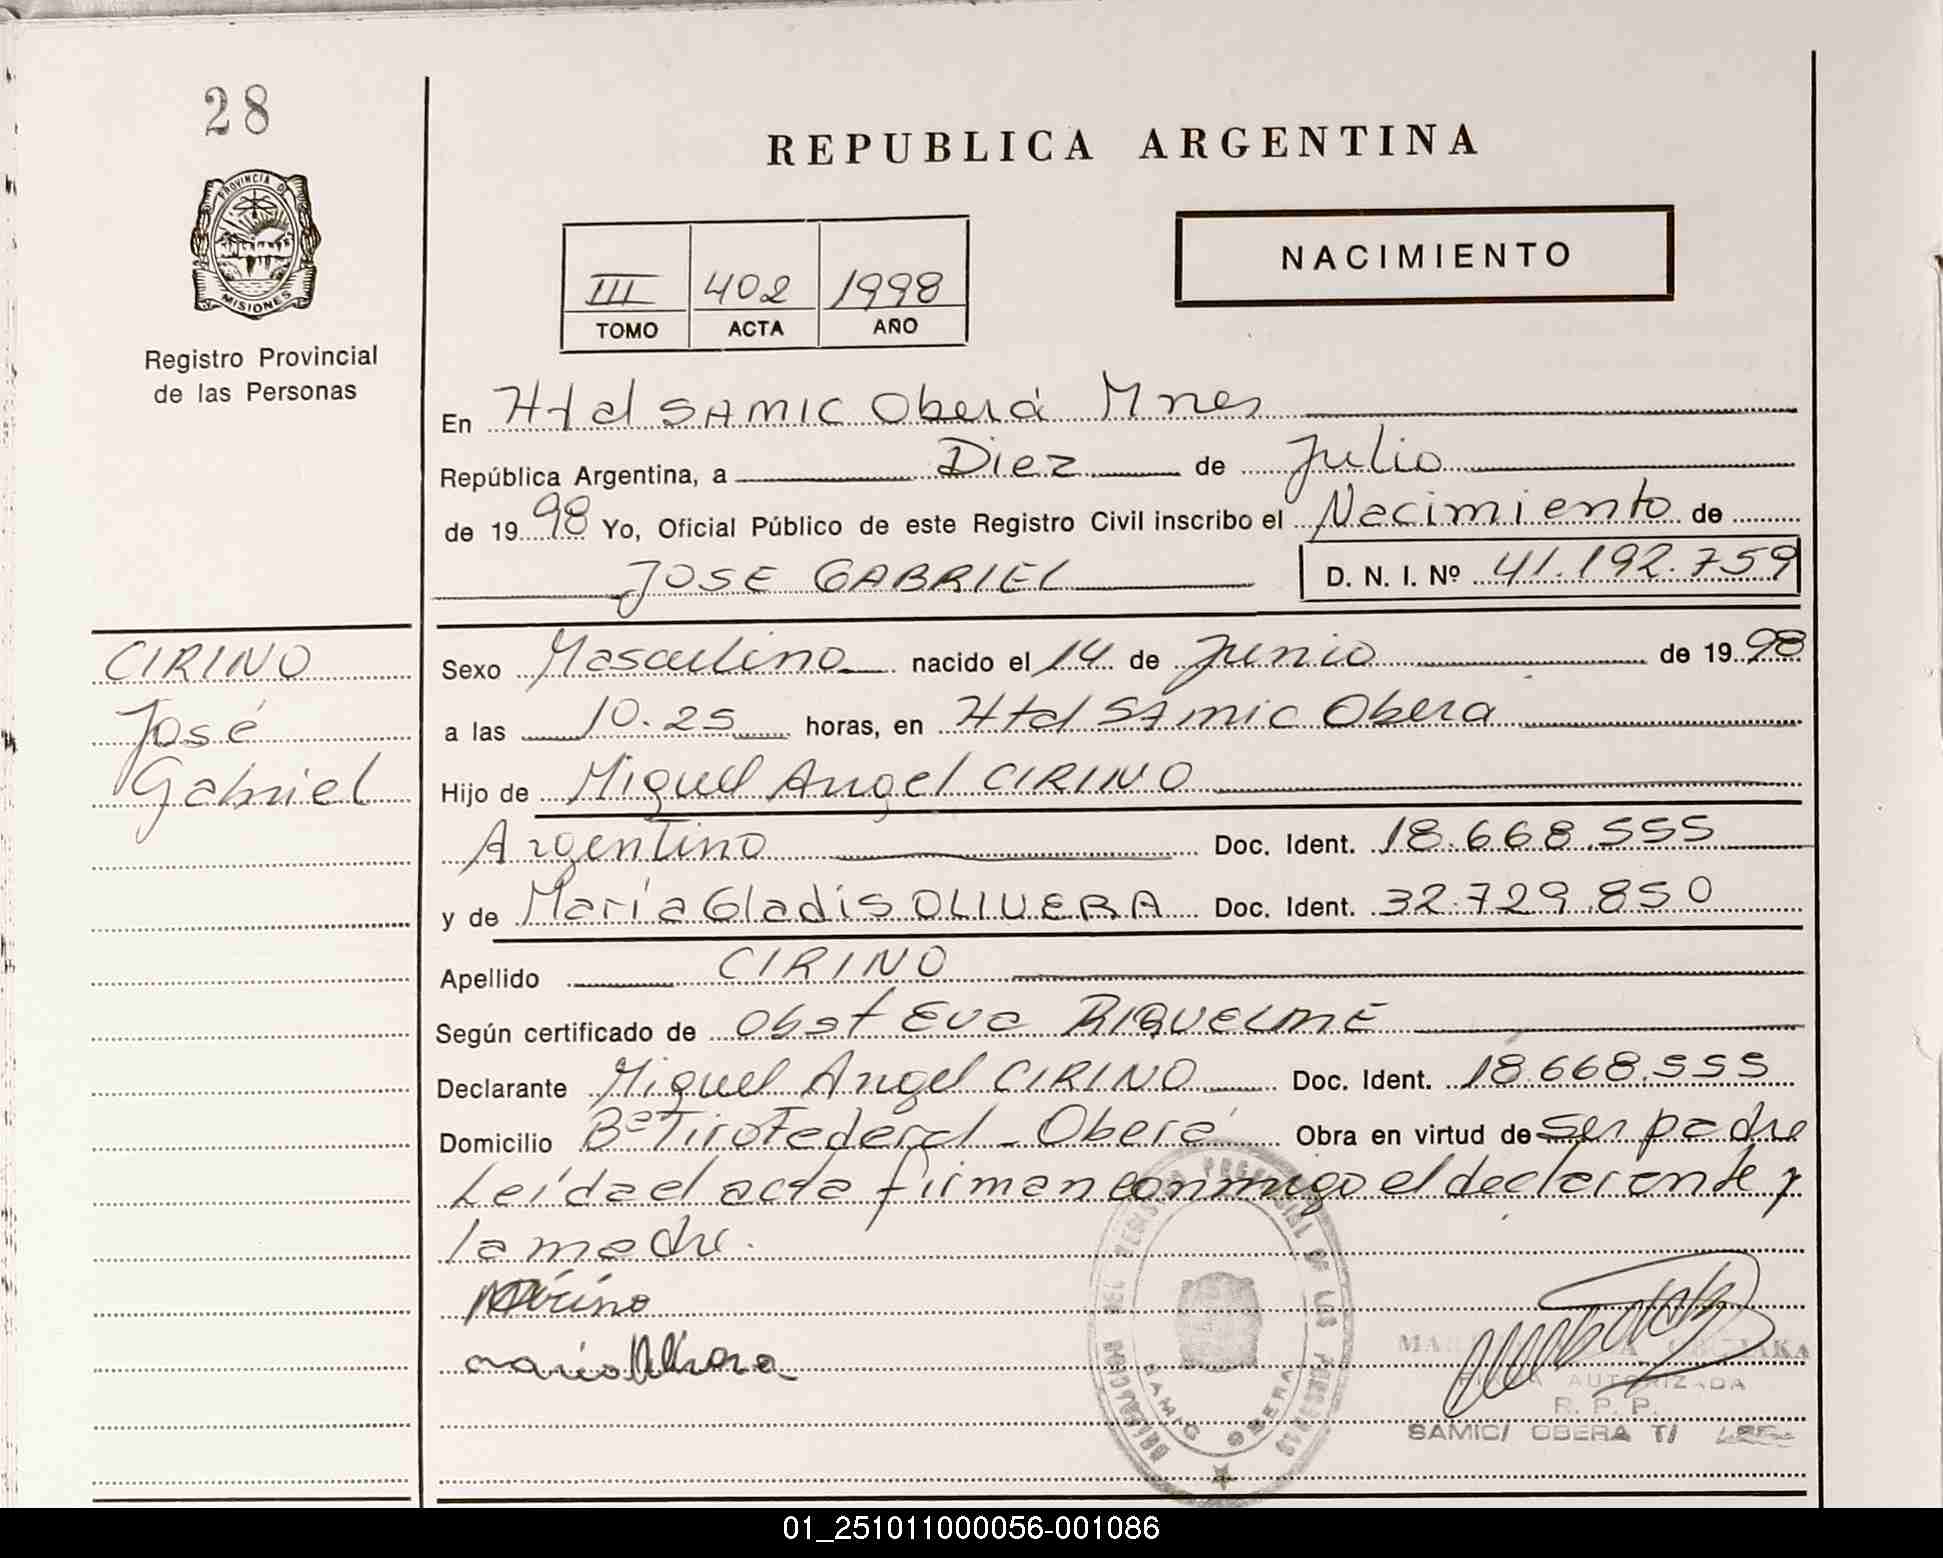 28
REPUBLICA ARGENTINA
PROVINCIA DE
MISIONES
NACIMIENTO
III 402 1998
TOMO ACTA AÑO
Registro Provincial
de las Personas
En Htal SAMIC Oberá Mnes
República Argentina, a Diez de Julio
de 1998 Yo, Oficial Público de este Registro Civil inscribo el Nacimiento de
JOSE GABRIEL D. N. I. Nº 41.192.759
CIRINO
José
Gabriel
Sexo Masculino nacido el 14 de Junio de 1998
a las 10.25 horas, en Htal SAmic Obera
Hijo de Miguel Angel CIRINO
Argentino Doc. Ident. 18.668.555
y de María Gladis OLIVERA Doc. Ident. 32.729.850
Apellido CIRINO
Según certificado de Obst Eva RIQUELME
Declarante Miguel Angel CIRINO Doc. Ident. 18.668.555
Domicilio Bº Tiro Federal - Oberá Obra en virtud de ser padre
Leída el acta firman conmigo el declarante y
la madre.
FIRMA AUTORIZADA
R. P. P.
SAMIC/ OBERA T/
SAMIC OBERA
01_251011000056-001086